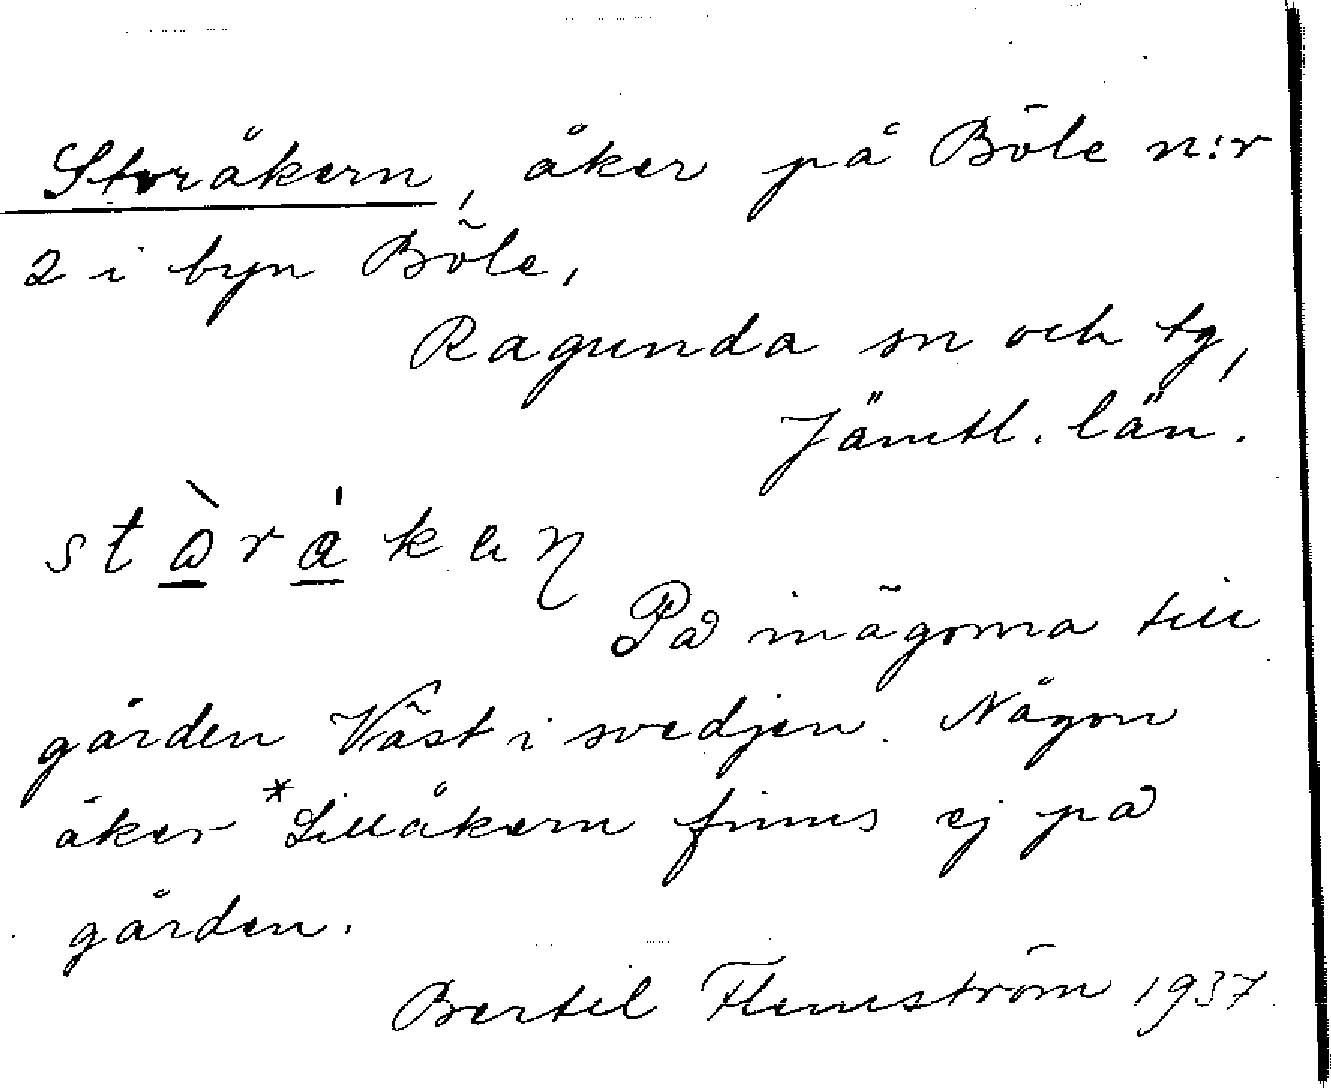 Storåkern, åker på Böle n:r
2 i byn Böle,
Ragunda sn och tg,
Jämtl. län.
På inägorna till
gården Väst i svedjen. Någon
åker *Lillåkern finns ej på
gården.
Bertil Flemström 1937.